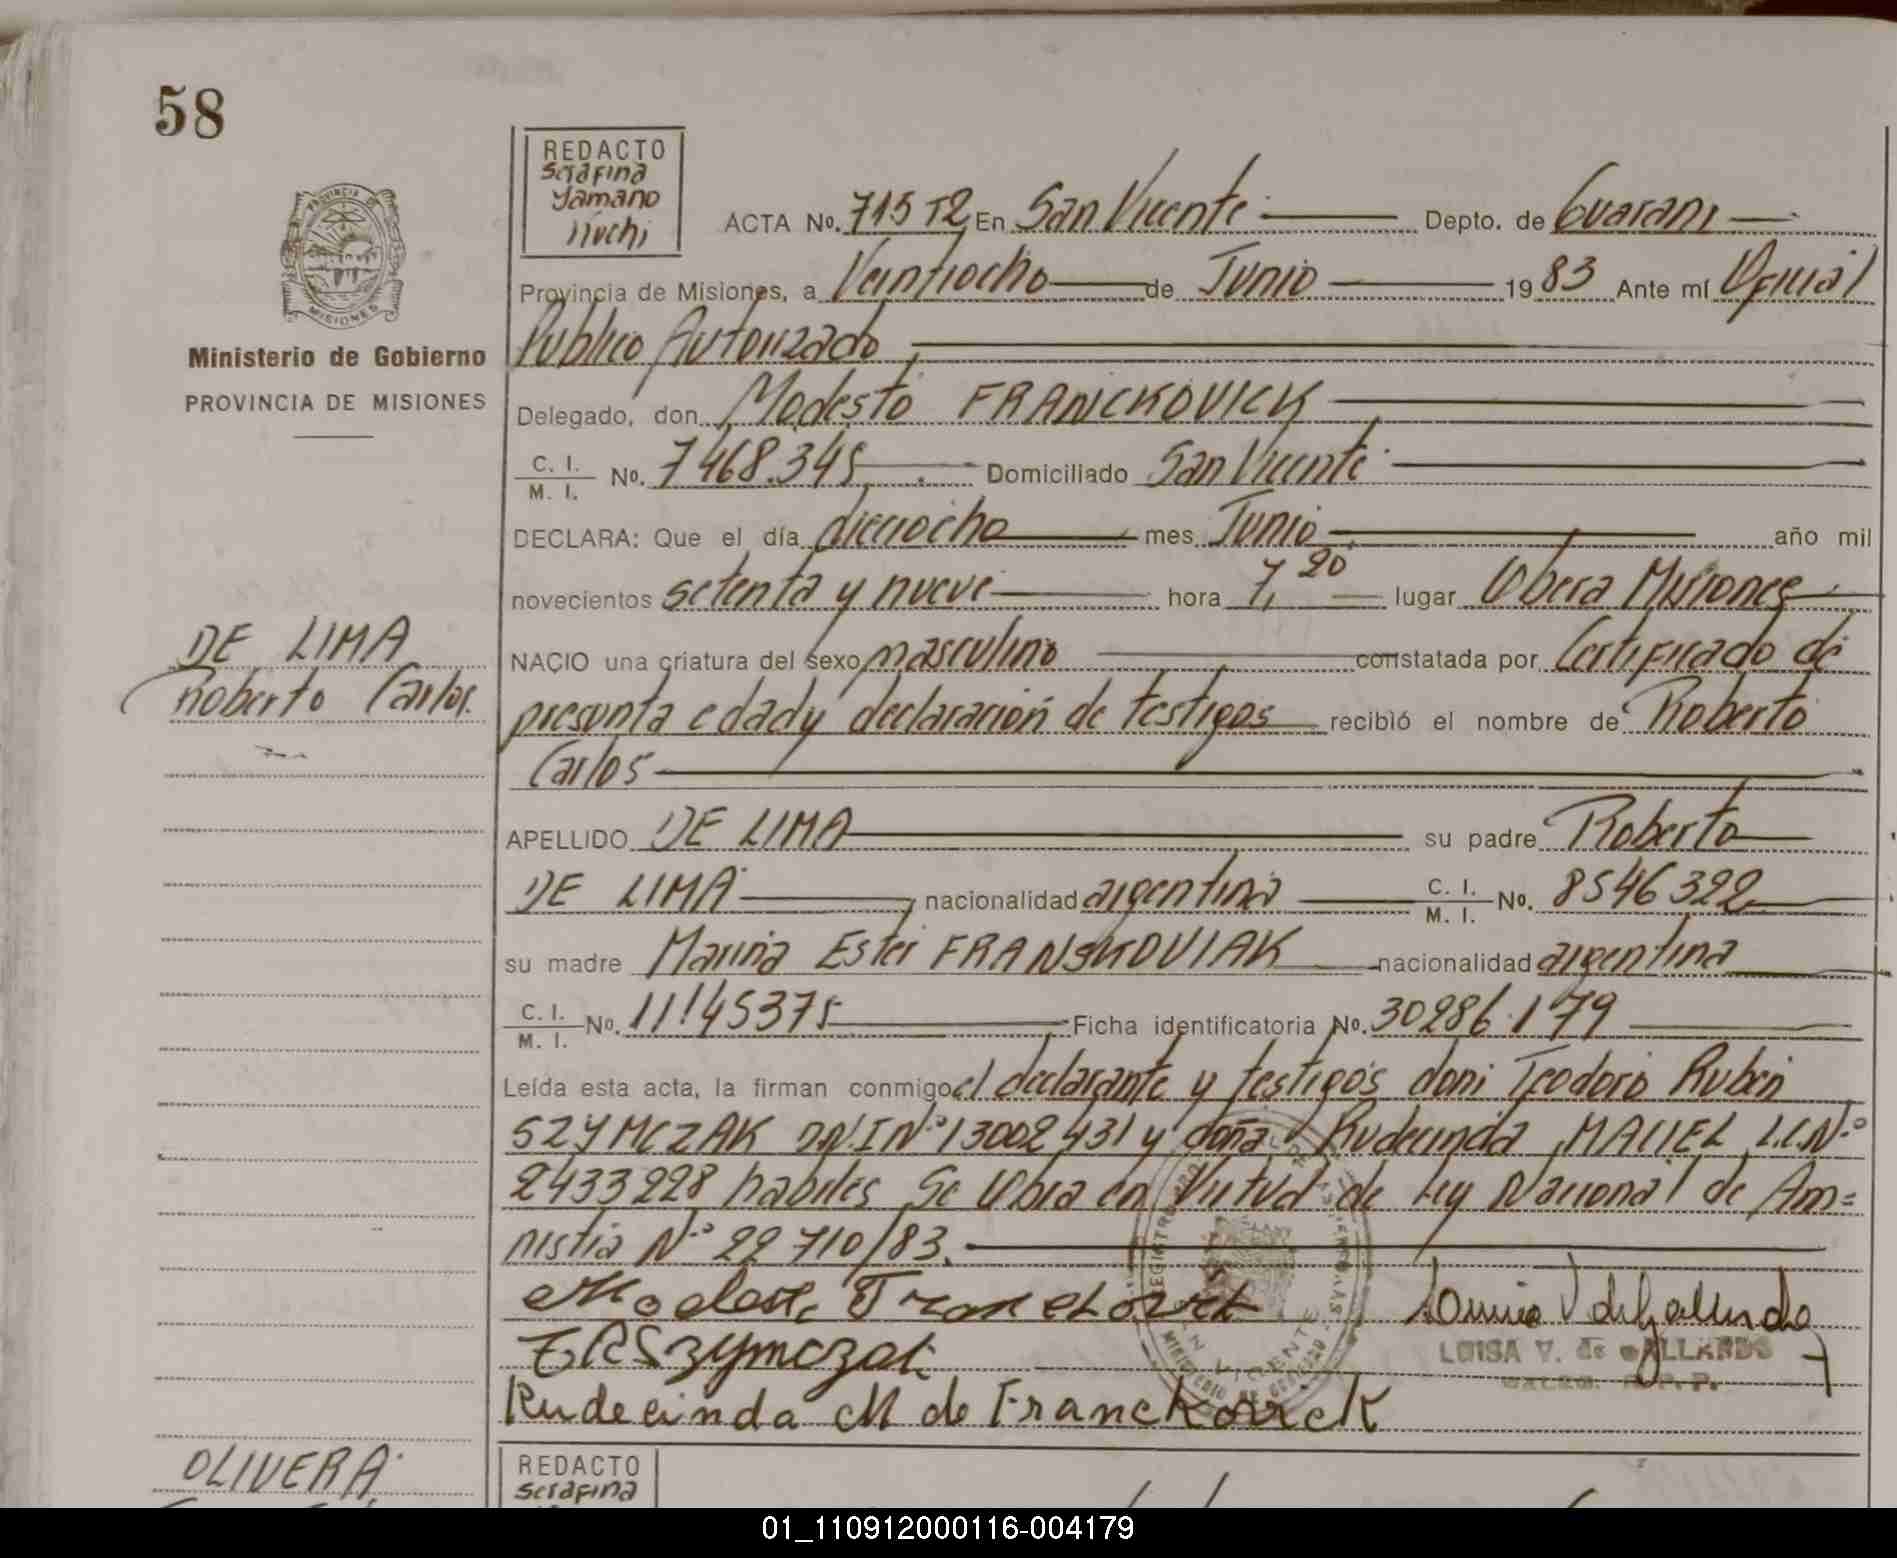 58
REDACTO
Serafina
Yamano
iiuchi
ACTA No. 715 T2 En San Vicente Depto. de Guarani
Provincia de Misiones, a Veintiocho de Junio 1983 Ante mí Oficial
Publico Autorizado
Ministerio de Gobierno
PROVINCIA DE MISIONES
Delegado, don Modesto FRANCKOVICK
C. I.
M. I. No. 7468.345 Domiciliado San Vicente
DECLARA: Que el día dieciocho mes Junio año mil
novecientos setenta y nueve hora 7,20 lugar Obera Misiones
DE LIMA
Roberto Carlos.
NACIO una criatura del sexo masculino constatada por Certificado de
presunta edad y declaración de testigos recibió el nombre de Roberto
Carlos
APELLIDO DE LIMA su padre Roberto
DE LIMA nacionalidad argentina C. I.
M. I. No. 8546322
su madre Marina Ester FRANSKOVIAK nacionalidad argentina
C. I.
M. I. No. 11!45375 Ficha identificatoria No. 30286.179
Leída esta acta, la firman conmigo el declarante y testigos don: Teodoro Ruben
SZYMCZAK D.N.I Nº 13002431 y doña Rudecinda MACIEL L.C.Nº
2433228 habiles Se Obra en Virtud de Ley Nacional de Am=
nistia Nº 22710/83.
Modesto Franckovick
T R Szymczak
LUISA V. de GALLARDO
Rudecinda M de Franckovick
OLIVERA
REDACTO
Serafina
01_110912000116-004179